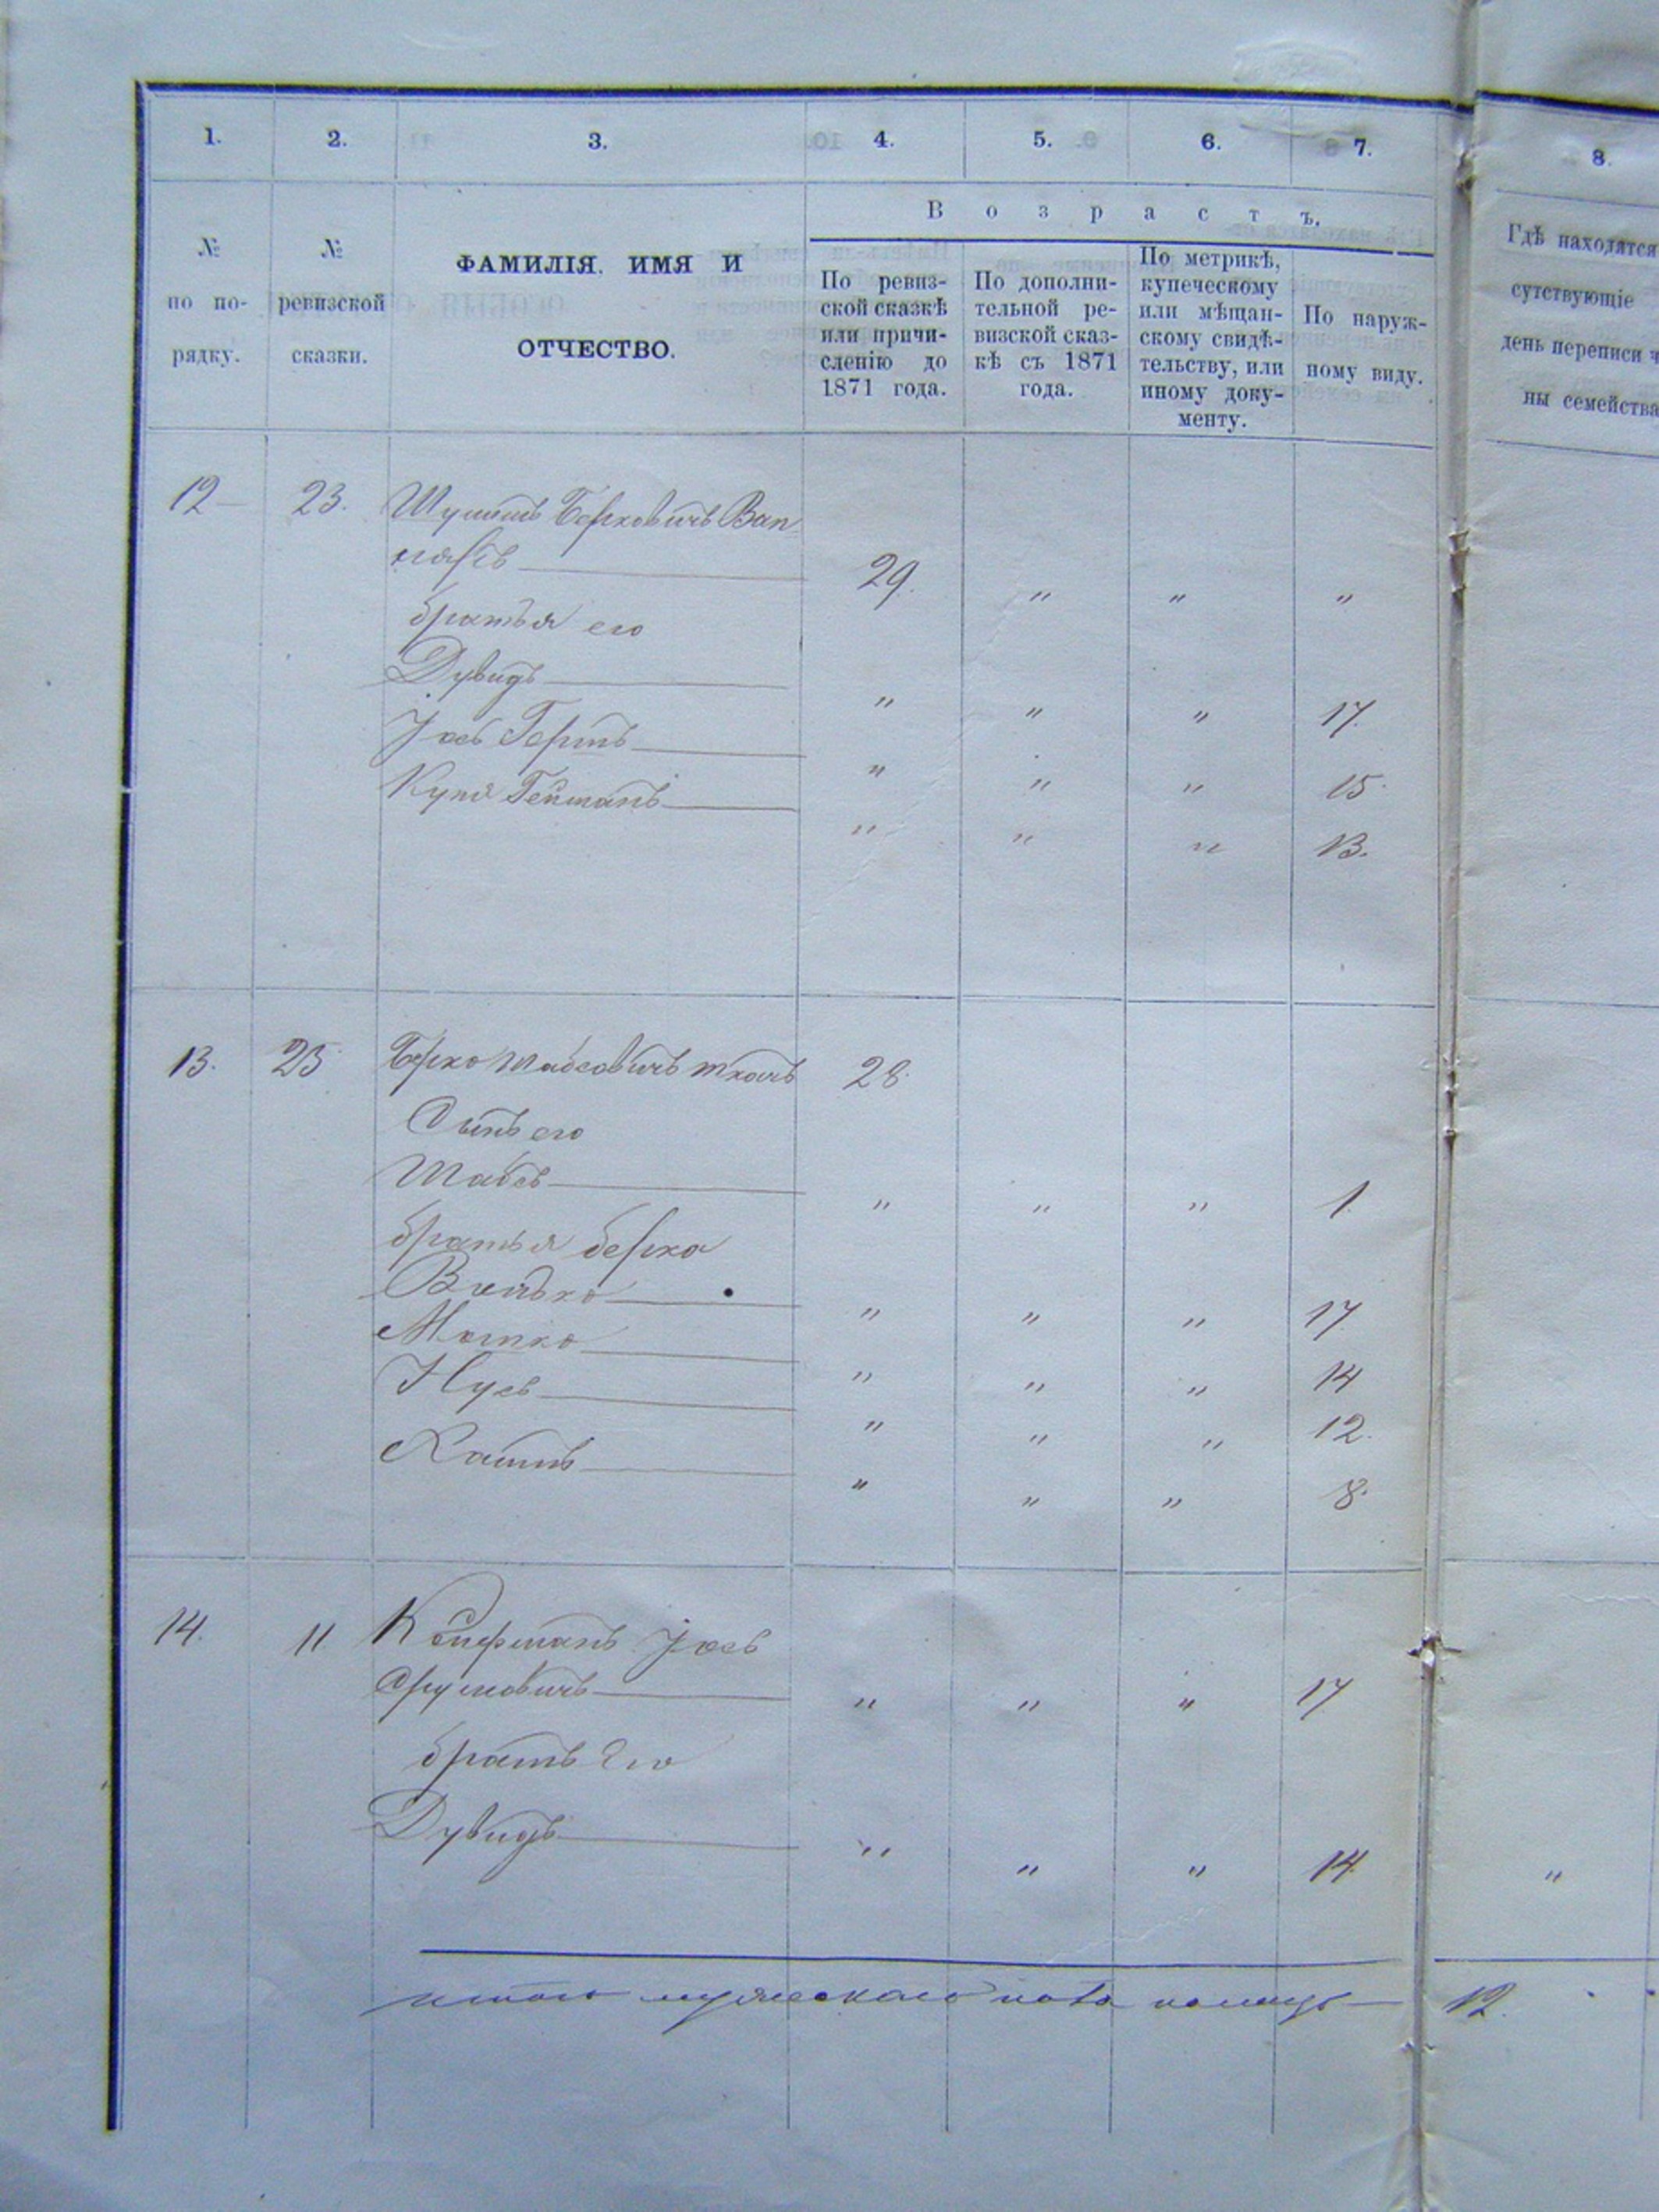 1. 2. 3. 4. 5. 6. 7. 8.
В о з р а с т ъ.
№ по по-рядку.
№ ревизской сказки.
ФАМИЛІЯ, ИМЯ И
ОТЧЕСТВО.
По ревиз-
ской сказкѣ
или причи-
сленію до
1871 года.
По дополни-
тельной ре-
визской сказ-
кѣ съ 1871
года.
По метрикѣ,
купеческому
или мѣщан-
скому свидѣ-
тельству, или
иному доку-
менту.
По наруж-
ному виду.
Гдѣ находятся
сутствующіе
день переписи ч
ны семейства
12 23. Берковичъ Вап
нярь 29. " " "
братья его
Дувидъ " " " 17.
Іось Герть " " " 15.
" " " 13.
13. 25 Берко Шабсовичъ Ткачъ 28.
Сынъ его
Шабсъ " " " 1
братья Берка
" " " 17
Мотко " " " 14
Нусь " " " 12.
" " " 8.
14. 11 Койфманъ Іось
Сруловичъ " " " 17
братъ Его
Дувидъ " " " 14. "
итого мужескаго пола 12.